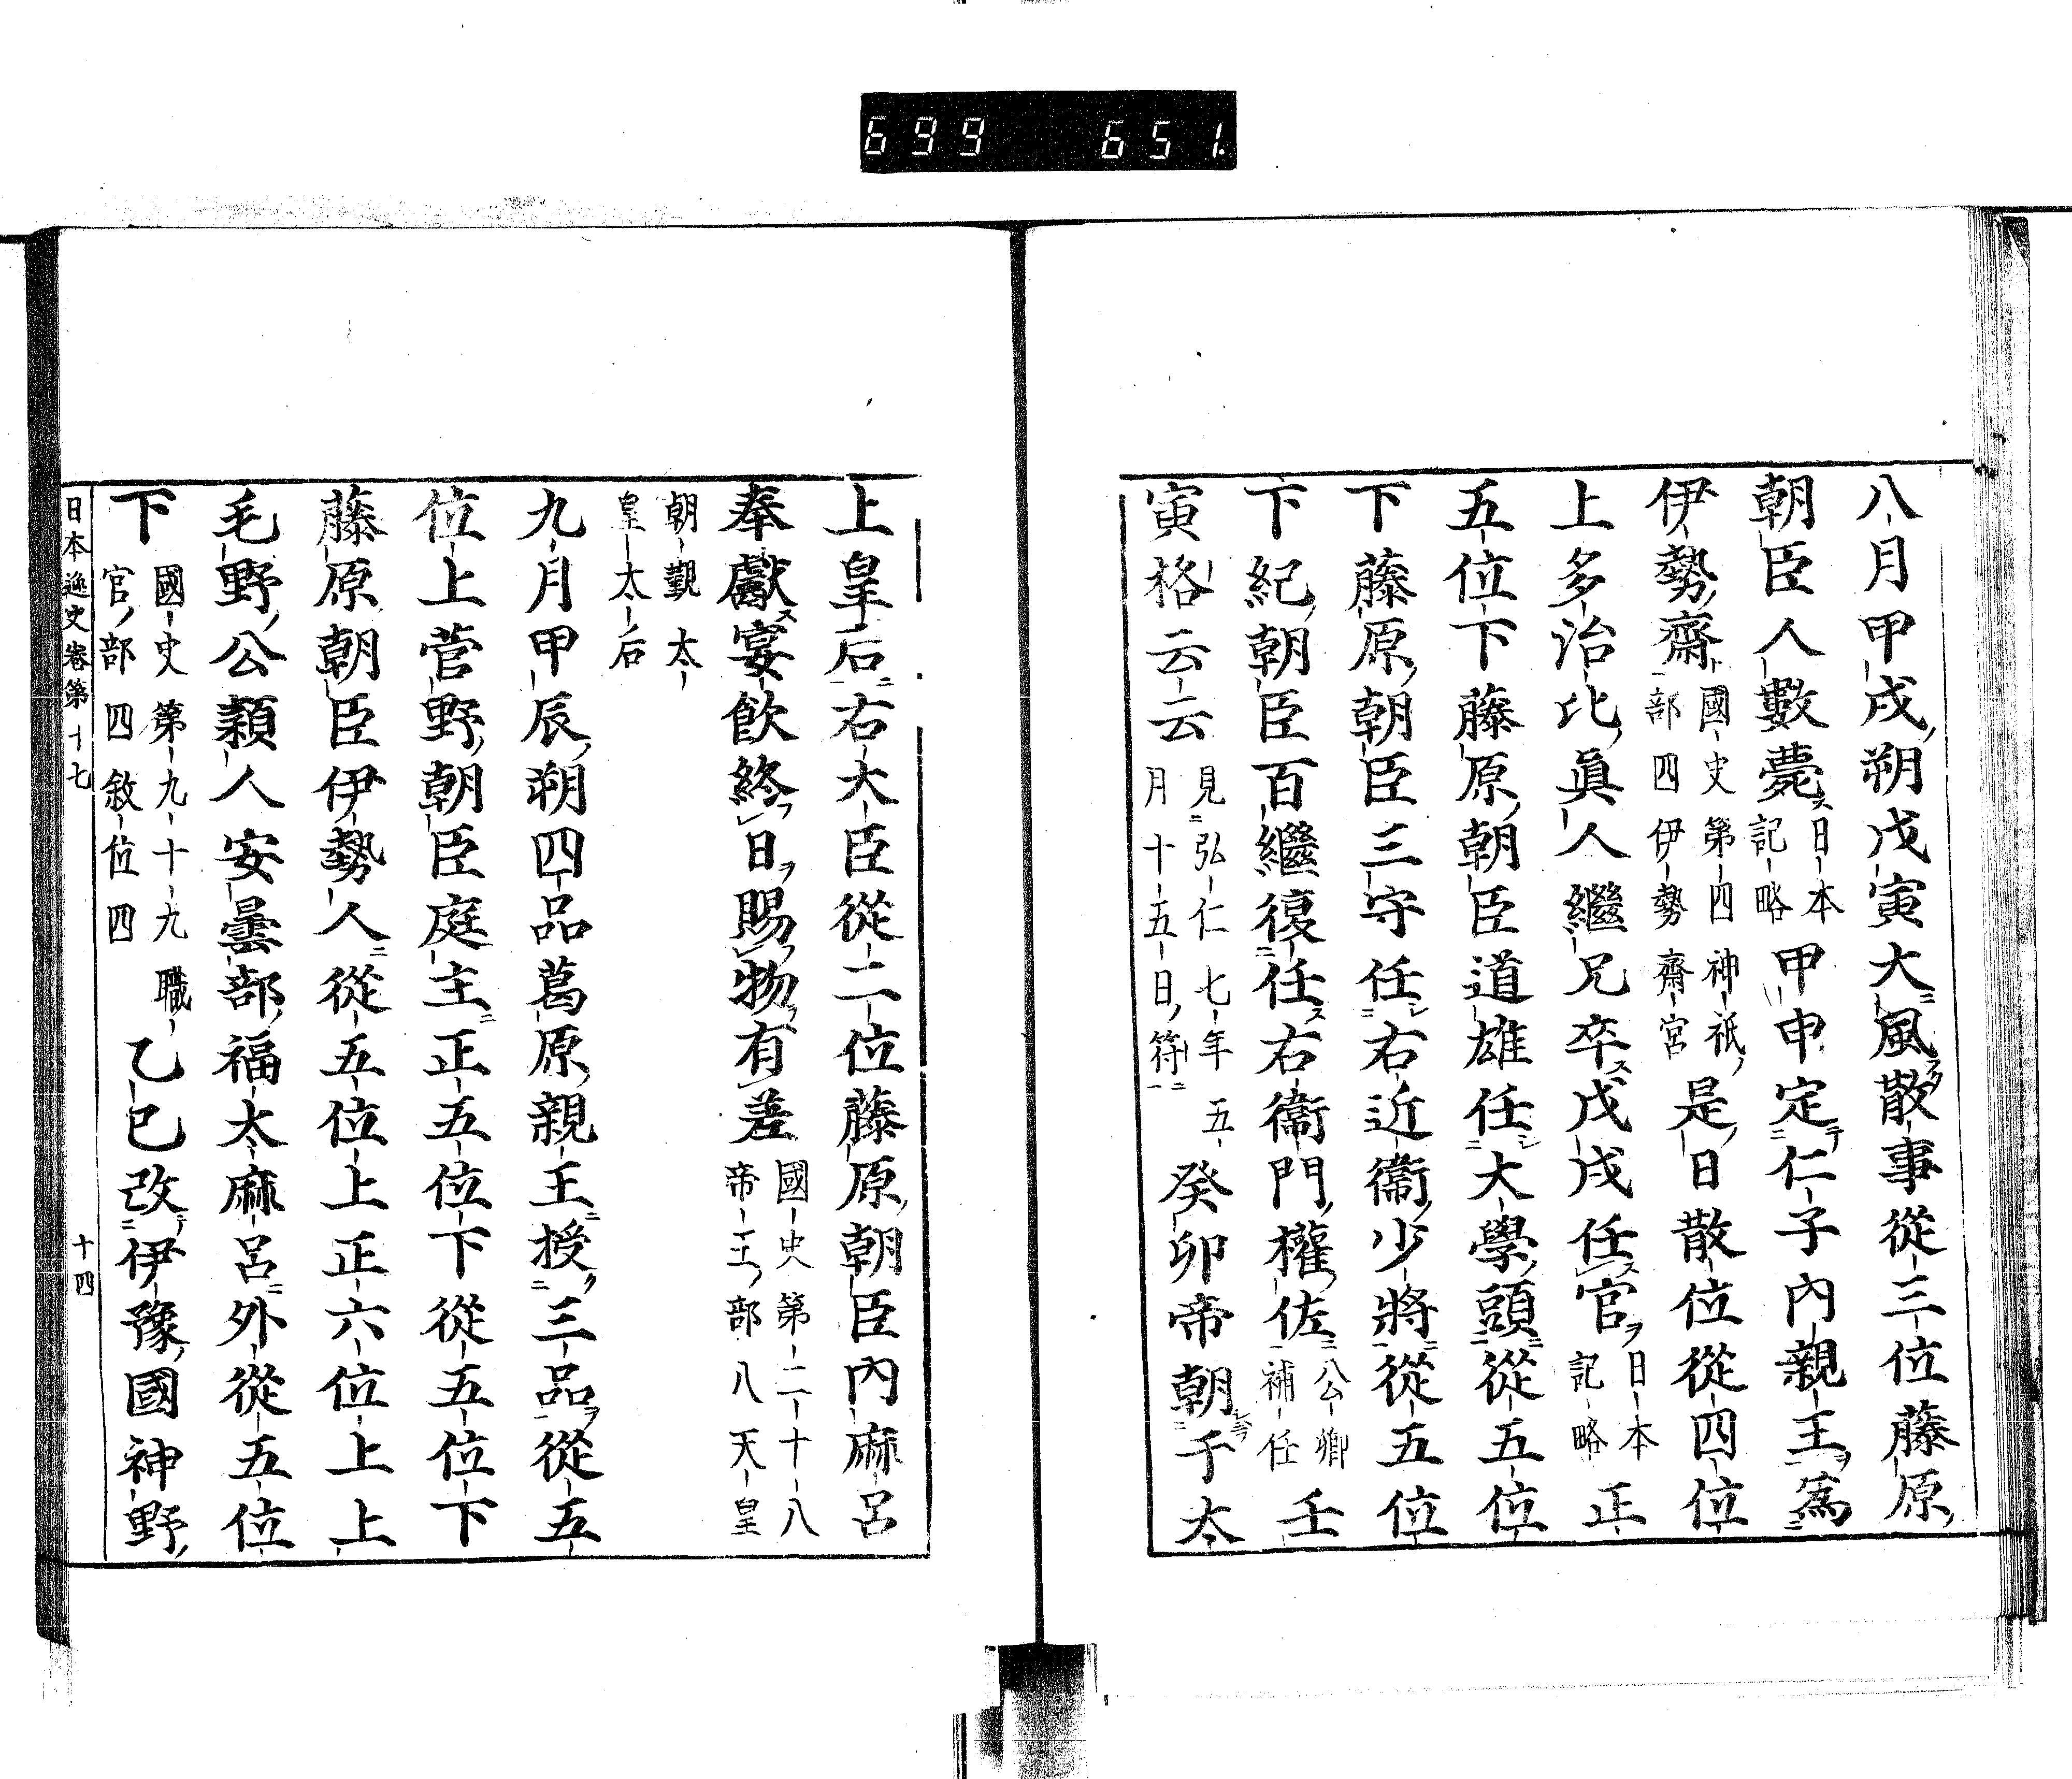 699 651
八月甲戌朔戊寅大風散事從三位藤原
朝臣人數薨日本記略甲申定仁子內親王爲
伊勢齋國史第四神祇部四伊勢齋宮是日散位從四位
上多治比眞人繼兄卒戊戌任官日本記略正
五位下藤原朝臣道雄任大學頭從五位
下藤原朝臣三守任右近衞少將從五位
下紀朝臣百繼復任右衞門權佐公卿補任壬
寅格云云見弘仁七年五月十五日符癸卯帝朝于太
上皇右大臣從二位藤原朝臣內麻呂
奉獻宴飲終日賜物有差國史第二十八帝王部八天皇
朝覲太皇太后
九月甲辰朔四品葛原親王授三品從五
位上菅野朝臣庭主正五位下從五位下
藤原朝臣伊勢人從五位上正六位上上
毛野公穎人安曇部福太麻呂外從五位
下國史第九十九職官部四敘位四乙巳改伊豫國神野
日本逸史卷第十七 十四